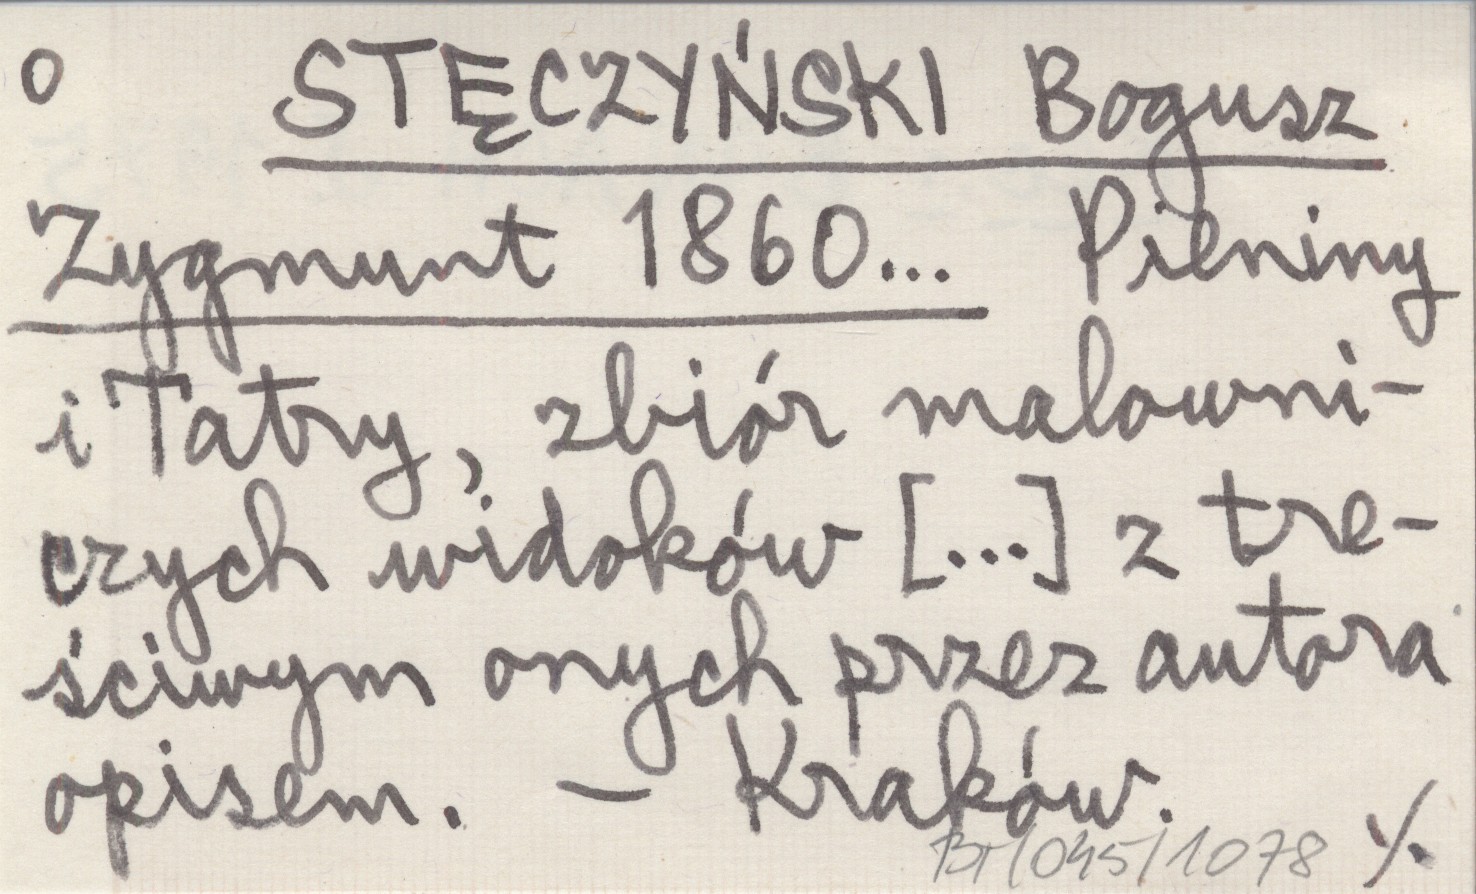 o STĘCZYŃSKI Bogusz
Zygmunt 1860... Pieniny
i Tatry, zbiór malowni-
czych widoków [...] z tre-
ściwym onych przez autora
opisem. – Kraków.
BT/045/1078 ./.